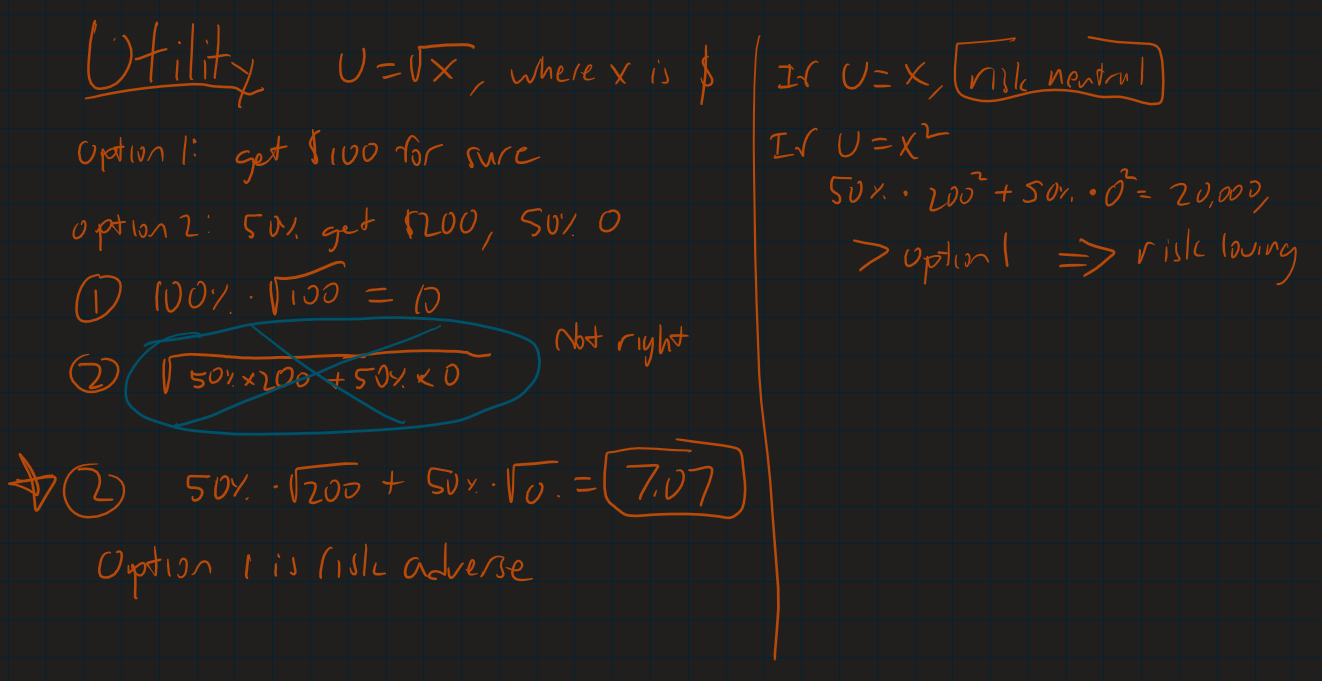 Utility U = √x, where x is $
option 1: get $100 for sure
option 2: 50% get $200, 50% 0
① 100% · √100 = 10
② √50% x 200 + 50% x 0
Not right
② 50% · √200 + 50% · √0 = 7.07
Option 1 is risk adverse
If U = x, risk neutral
If U = x²
50% · 200² + 50% · 0² = 20,000,
> option 1 ⇒ risk loving